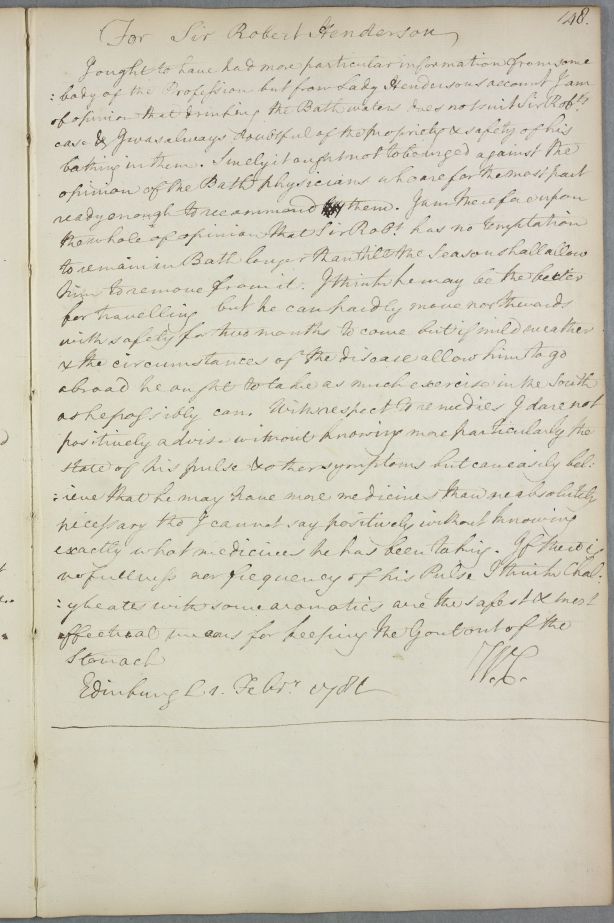 148.
For Sir Robert Henderson
I ought to have had more particular information from some
:body of the Profession but from Lady Hendersons account I am
of opinion that drinking the Bath waters does not suit Sir Robts.
case & I was always doubtful of the propriety & safety of his
bathing in them. Surely it ought not to be urged against the
opinion of the Bath physicians who are for the most part
ready enough to recommend them. I am therefore upon
the whole of opinion that Sir Robt has no temptation
to remain in Bath longer than till the Season shall allow
him to remove from it. I think he may be the better
for travelling but he can hardly move northwards
with safety for two months to come but if mild weather
& the circumstances of the disease allow him to go
abroad he ought to take as much exercise in the South
as he possibly can. With respect to remedies I dare not
positively advise without knowing more particularly the
state of his pulse & other symptoms but can easily bel:
:ieve that he may have more medicines than are absolutely
necessary tho I cannot say positively without knowing
exactly what medicines he has been taking. If there is
no fullness nor frequency of his Pulse I think Chal:
:ybeates with some aromatics are the safest & most
effectual means for keeping the Gout out of the
Stomach
W.C.
Edinburgh 1. Febr. 1781